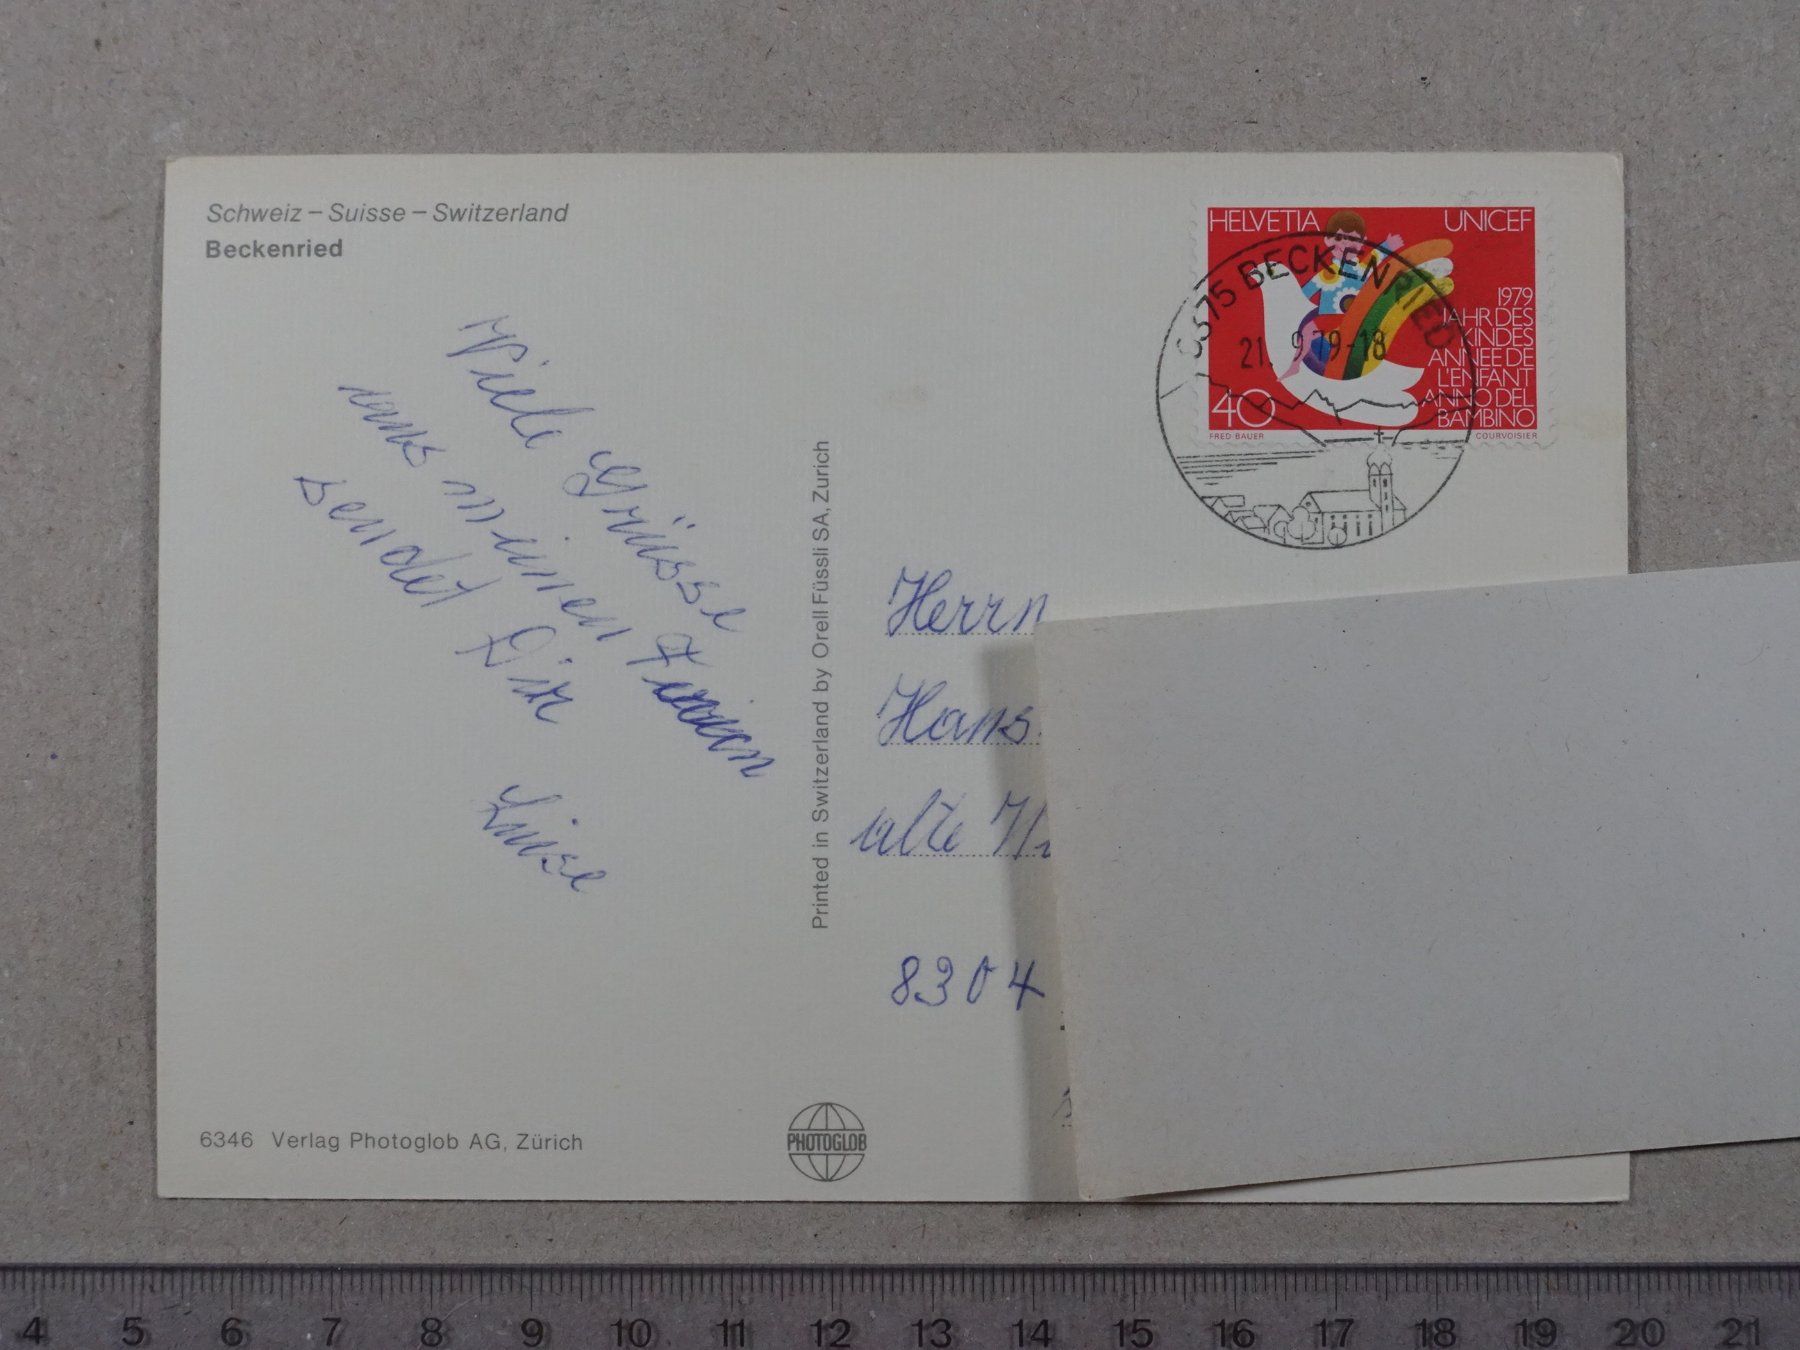 Schweiz – Suisse – Switzerland
Beckenried
HELVETIA UNICEF
1979
JAHR DES
KINDES
ANNEE DE
L'ENFANT
ANNO DEL
BAMBINO
40
FRED BAUER COURVOISIER
6375 BECKENRIED
21. 9.79-18
Viele Grüsse
aus meinen Ferien
sendet Dir
Luise
Printed in Switzerland by Orell Füssli SA, Zurich
Herrn
Hans
alte
8304
6346 Verlag Photoglob AG, Zürich
PHOTOGLOB
4 5 6 7 8 9 10 11 12 13 14 15 16 17 18 19 20 21